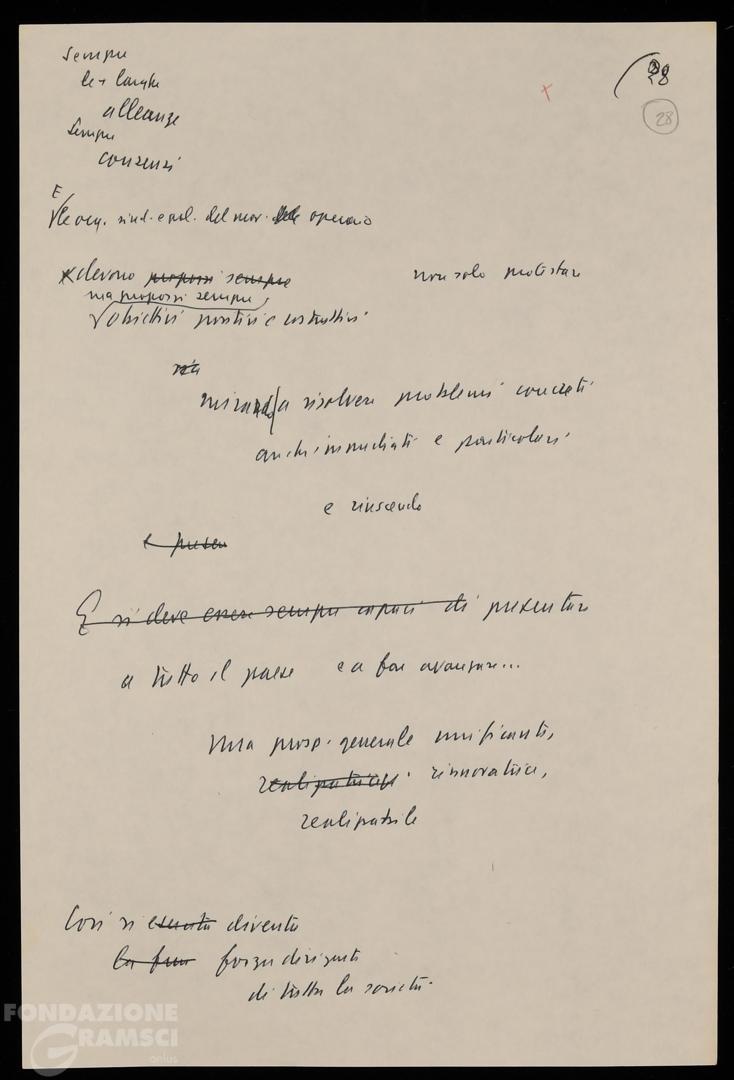 Sempre
le + larghe
alleanze
Sempre
consensi
28
28
E
le org. sind. e pol. del mov. operaio
devono proporsi sempre non solo protestare
ma proporsi sempre
obiettivi positivi e costruttivi
sia
mirando a risolvere problemi concreti
anche immediati e particolari
e riuscendo
e presen
E si deve essere sempre capaci di presentare
a tutto il paese e a far avanzare...
una prosp. generale unificante,
rinnovatrice,
realizzabile
Così si esercita diventa
la fun forza dirigente
di tutta la società.
FONDAZIONE
GRAMSCI
onlus